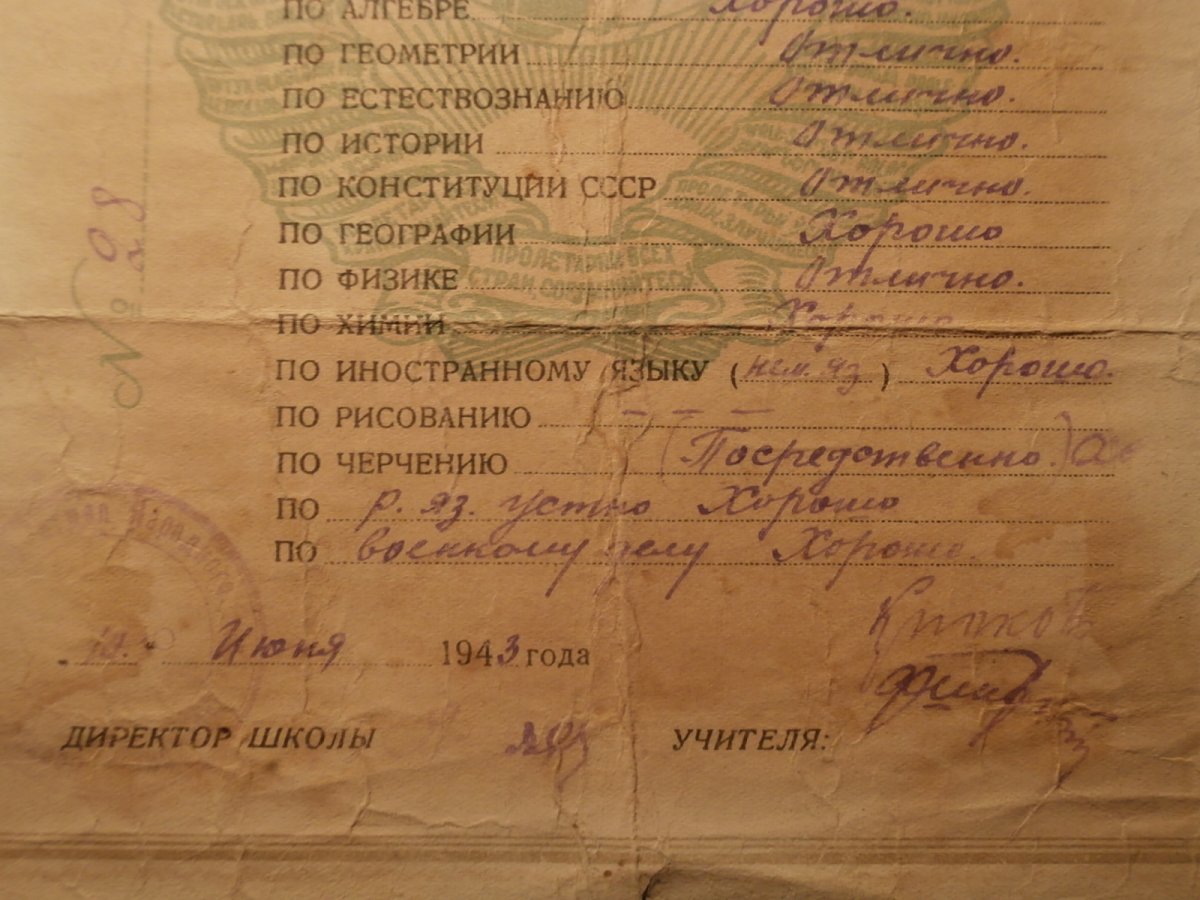 ПО АЛГЕБРЕ Хорошо.
ПО ГЕОМЕТРИИ Отлично.
ПО ЕСТЕСТВОЗНАНИЮ Отлично.
ПО ИСТОРИИ Отлично.
ПО КОНСТИТУЦИИ СССР Отлично.
ПО ГЕОГРАФИИ Хорошо
ПРОЛЕТАРИИ ВСЕХ
СТРАН, СОЕДИНЯЙТЕСЬ
ПО ФИЗИКЕ Отлично.
ПО ХИМИИ Хорошо
ПО ИНОСТРАННОМУ ЯЗЫКУ (нем. яз.) Хорошо.
ПО РИСОВАНИЮ — — —
ПО ЧЕРЧЕНИЮ (Посредственно.)
ПО р. яз. устно Хорошо
ПО военному делу Хорошо.
№ 08
Народного
Июня 1943 года
ДИРЕКТОР ШКОЛЫ УЧИТЕЛЯ: